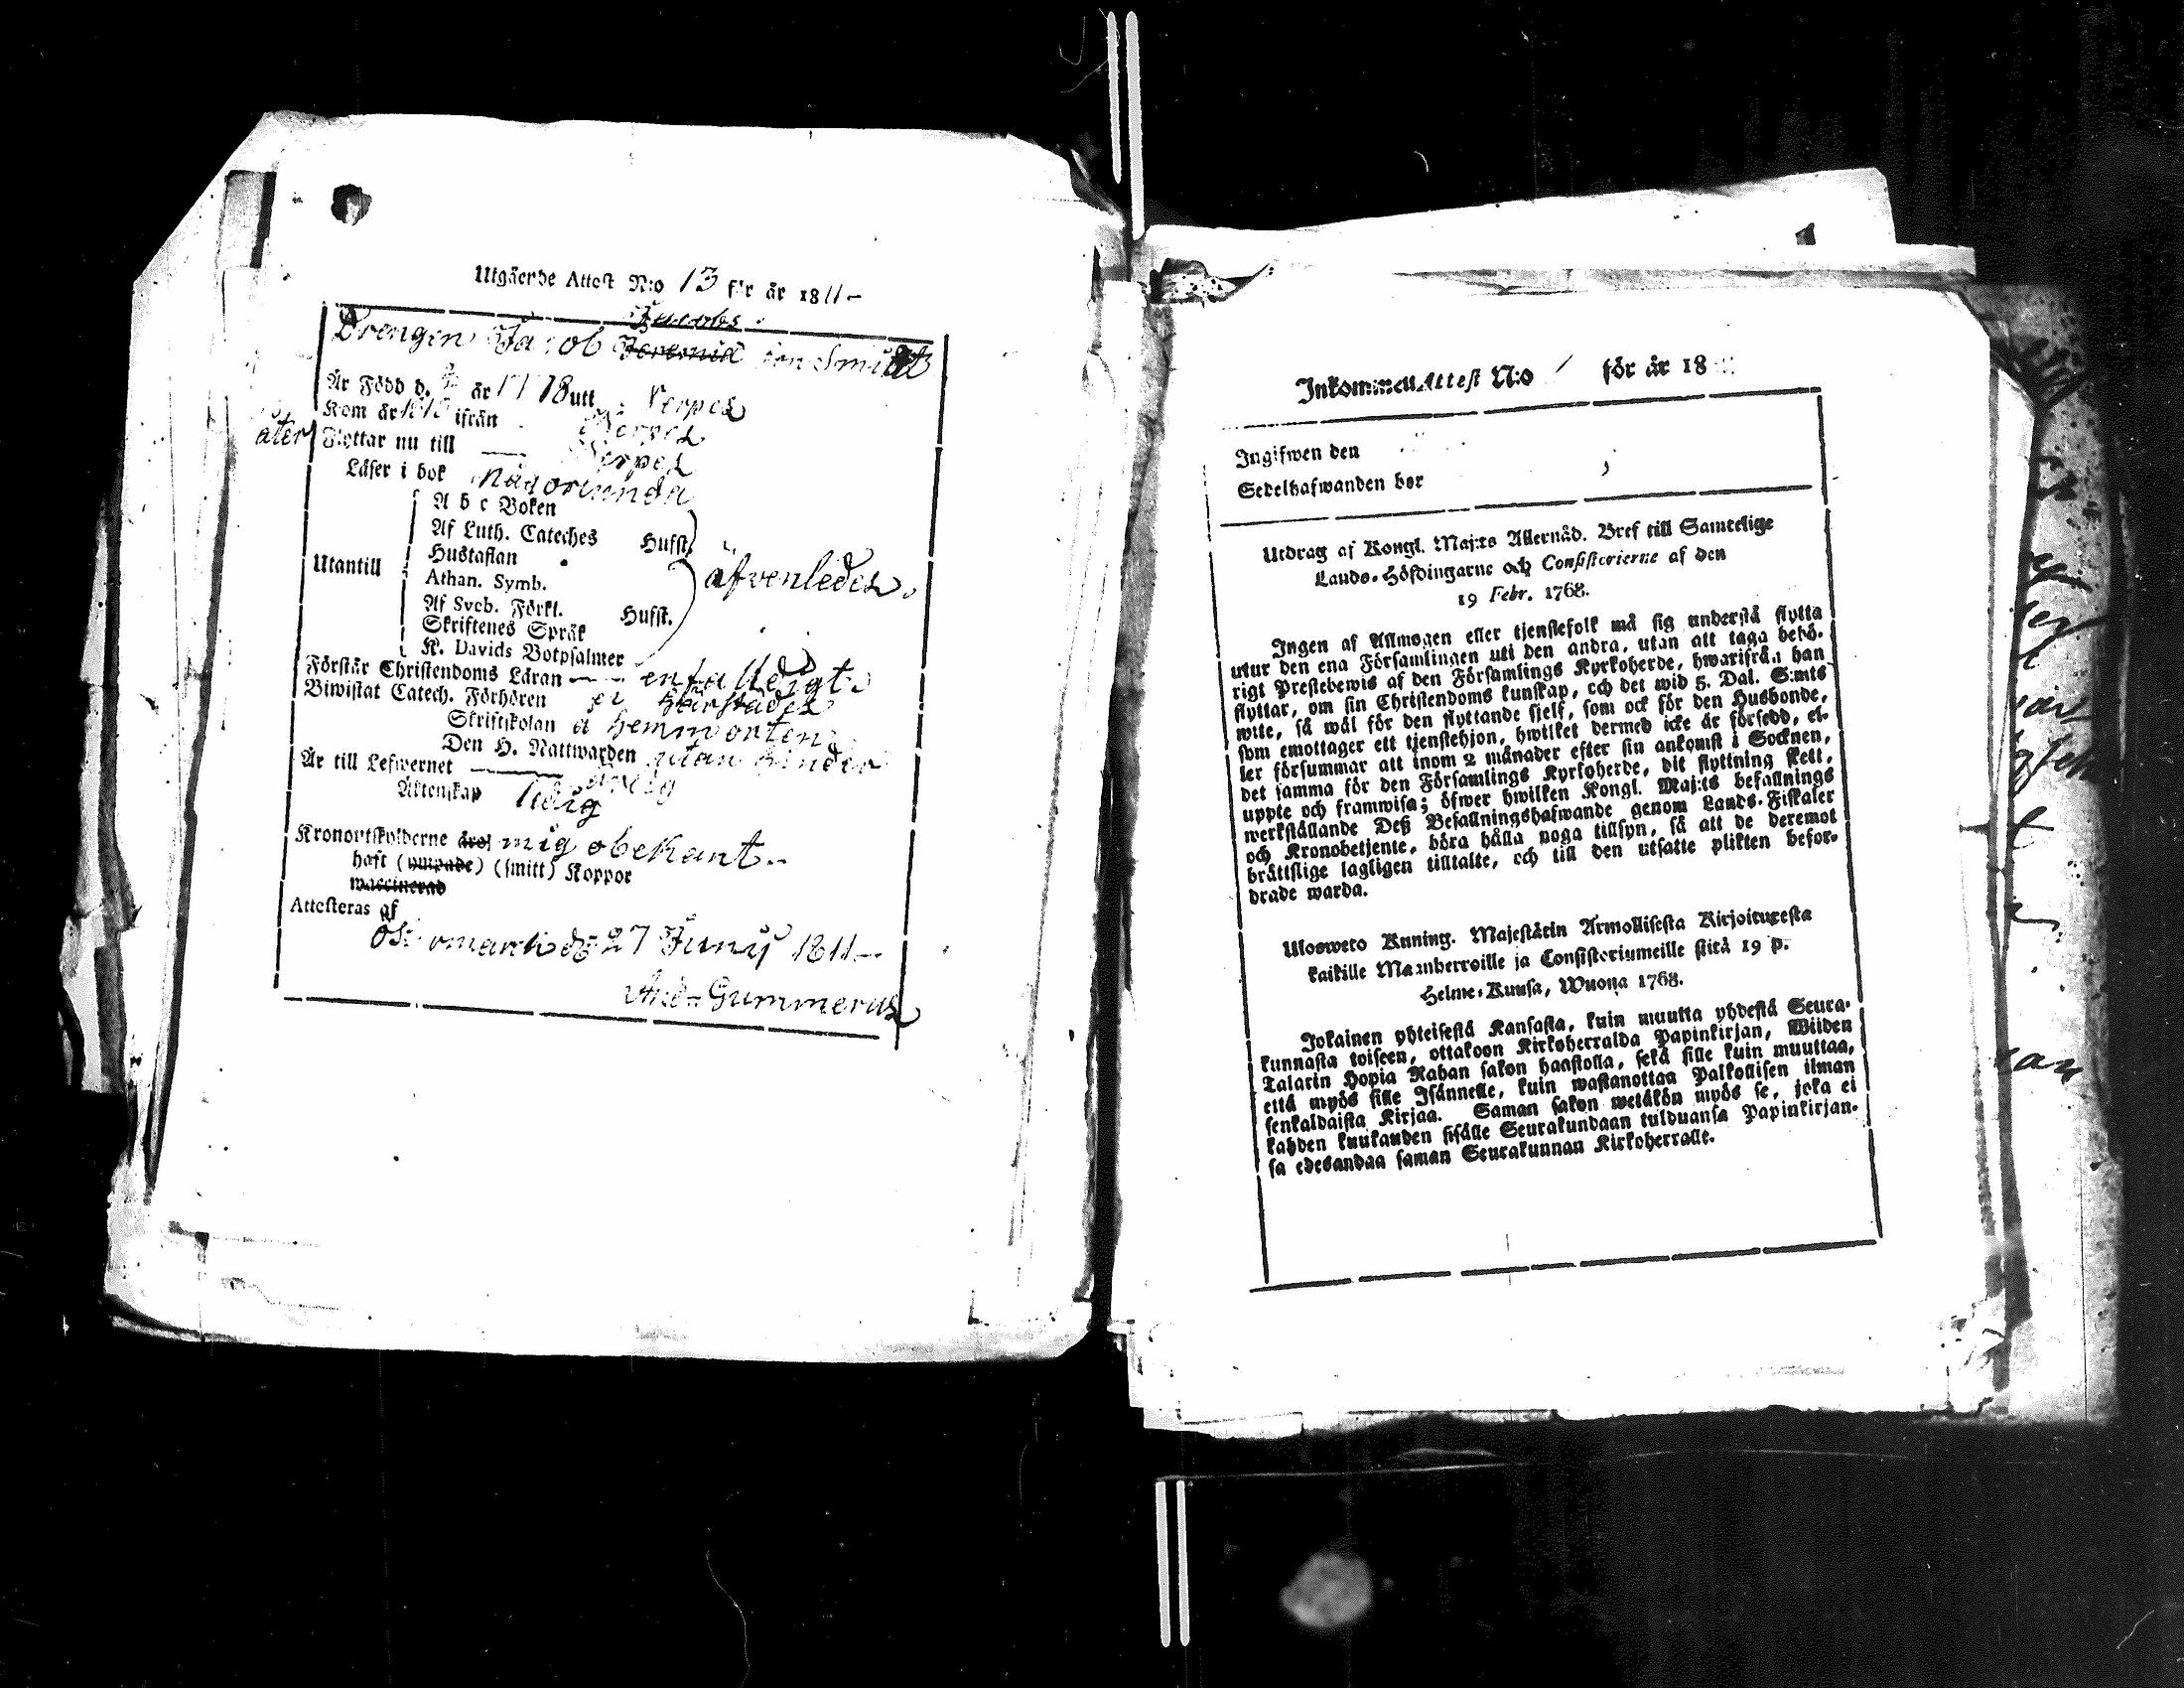 Utgående Attest N:o 13 för år 1811-
Jacobs
Drengen Jacob Jeremiæ son Smitt
Är Född d. år 1778 utt Nerpes
Kom år 1810 ifrån Nerpes
åter Flyttar nu till Nerpes
Läser i bok någorlunda
A b c Boken
Af Luth. Cateches Hufst.
Hustaflan
Utantill
Athan. Symb. äfvenledes.
Af Sveb. Förkl. Hufst.
Skriftenes Språk
K. Davids Botpsalmer
Förstår Christendoms Läran enfalldigt.
Biwistat Catech. Förhören ej härstädes
Skriftskolan a hemmorten
Den H. Nattwarden utan hinder
Är till Lefwernet ärlig
Äktenskap ledig
Kronoutskylderne äro mig obekant.-
haft (ympade) (smitt) Koppor
waccinerad
Attesteras af
27 Junij 1811-
Gummerus
Inkommen Attest N:o för år 18
Ingifwen den
Sedelhafwanden bor
Utdrag af Kongl. Maj:ts Allernåd. Bref till Samtelige
Lands-Höfdingarne och Consistorierne af den
19 Febr. 1768.
Ingen af Allmogen eller tjenstefolk må sig understå flytta
utur den ena Församlingen uti den andra, utan att taga behö-
rigt Prestebewis af den Församlings Kyrkoherde, hwarifrån han
flyttar, om sin Christendoms kunskap, och det wid 5. Dal. S:mts
wite, så wäl för den flyttande sjelf, som ock för den Husbonde,
som emottager ett tjenstehjon, hwilket dermed icke är försedd, el-
ler försummar att inom 2 månader efter sin ankomst i Socknen,
det samma för den Församlings Kyrkoherde, dit flyttning skett,
uppte och framwisa; öfwer hwilken Kongl. Maj:ts befallnings
werkställande Deß Befallningshafwande genom Lands-Fiskaler
och Kronobetjente, böra hålla noga tillsyn, så att de deremot
bråttslige lagligen tilltalte, och till den utsatte plikten befor-
drade warda.
Uloswето Kuning. Majestätin Armollisesta Kirjoituxesta
kaikille Maanherroille ja Consistoriumeille siitä 19 p.
Helme-Kuusa, Wuona 1768.
Jokainen yhteisestä Kansasta, kuin muutta yhdestä Seura-
kunnasta toiseen, ottakoon Kirkoherralda Papinkirjan, Wiiden
Talarin Hopia Rahan sakon haastolla, sekä sille kuin muuttaa,
että myös sille Isännelle, kuin wastanottaa Palkollisen ilman
senkaldaista Kirjaa. Saman sakon wetäkön myös se, joka ei
kahden kuukauden sisälle Seurakundaan tulduansa Papinkirjan-
sa edesandaa saman Seurakunnan Kirkoherralle.